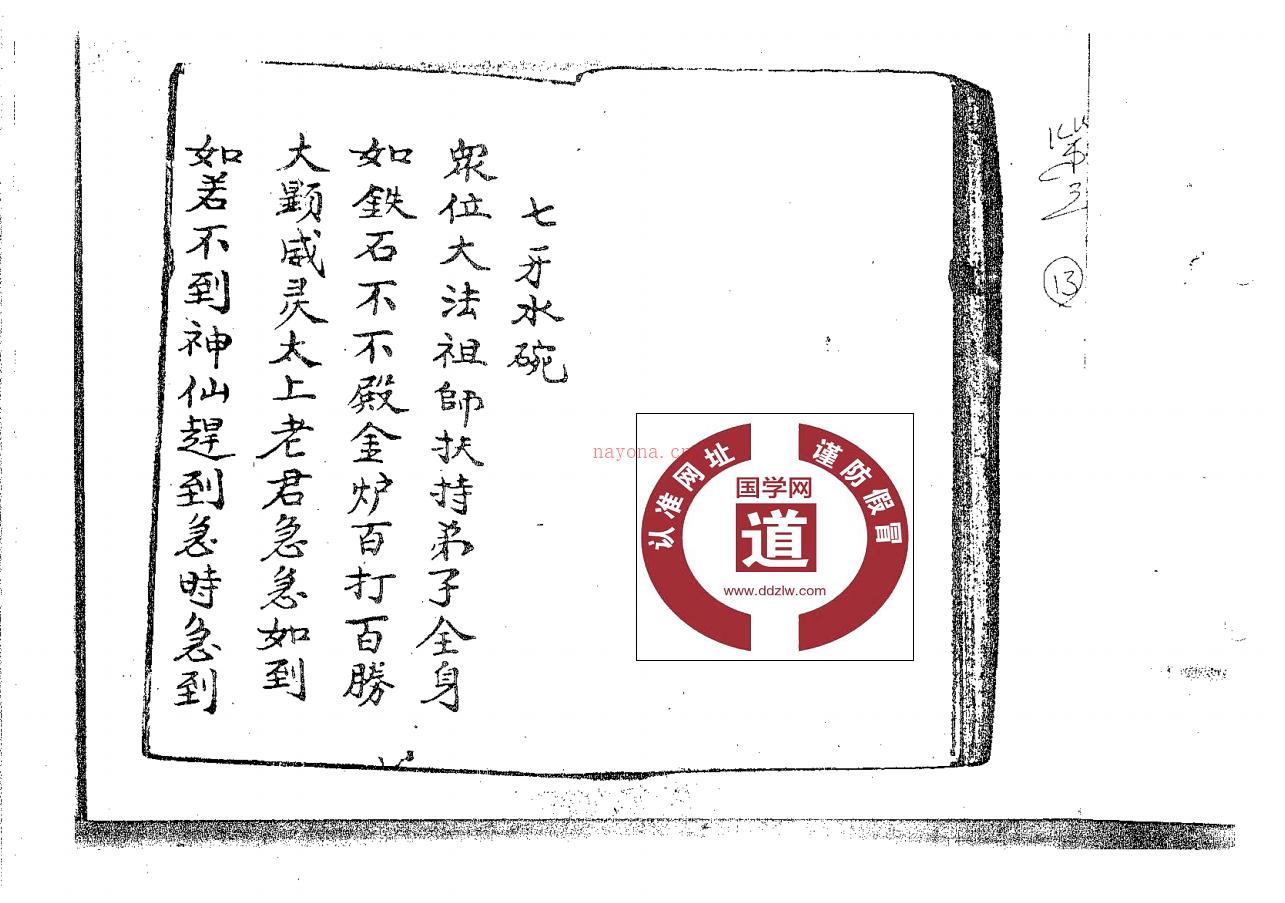 七牙水碗
眾位大法祖師扶持弟子全身
如鉄石不不殿金炉百打百勝
大顯威灵太上老君急急如到
如若不到神仙趕到急時急到
第3
13
nayona.cn
认准网址
谨防假冒
国学网
道
www.ddzlw.com